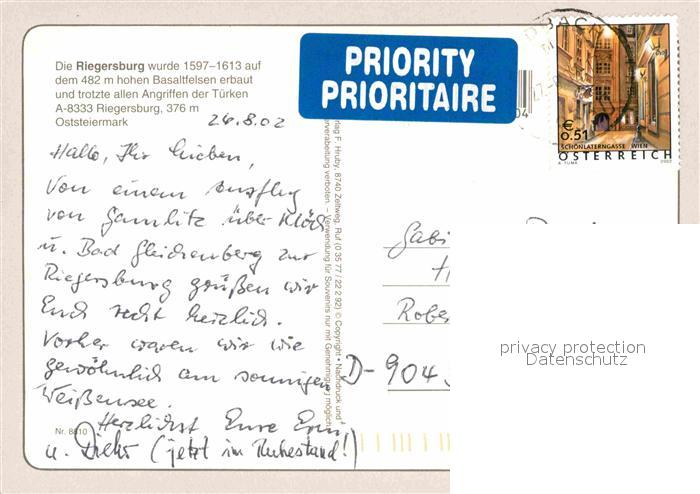 Die Riegersburg wurde 1597–1613 auf
dem 482 m hohen Basaltfelsen erbaut
und trotzte allen Angriffen der Türken
A-8333 Riegersburg, 376 m
Oststeiermark
26.8.02
Hallo, Ihr Lieben,
Von einem Ausflug
von Gamlitz über Klöch
u. Bad Gleichenberg zur
Riegersburg grüßen wir
Euch recht herzlich.
Vorher waren wir wie
gewöhnlich am sonnigen
Weißensee.
Herzlichst Eure
u. Dieter (jetzt im Ruhestand!)
Nr. 8810
PRIORITY
PRIORITAIRE
€
0.51
SCHÖNLATERNGASSE WIEN
ÖSTERREICH
A. TUMA 2002
rlag F. Hruby, 8740 Zeltweg, Ruf (0 35 77 / 22 2 92) © Copyright • Nachdruck und
rverarbeitung verboten. – Verwendung für Souvenirs nur mit Genehmigung möglich
Gabi
H
Rober
D-904
privacy protection
Datenschutz